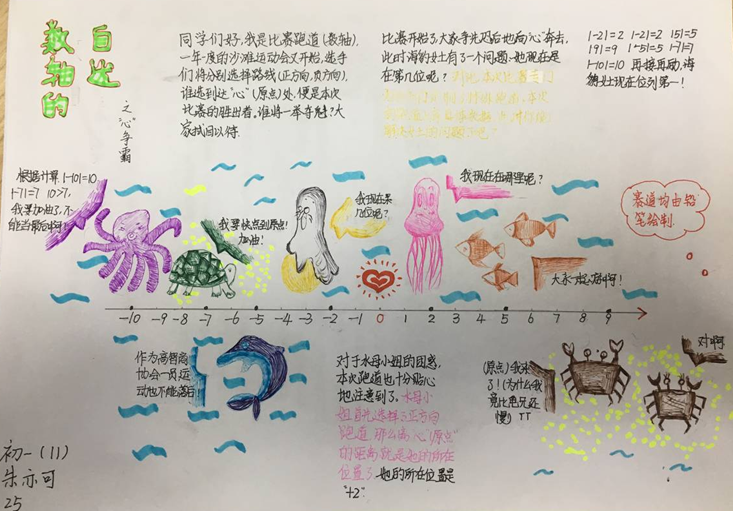 数轴的
自述
之"心"争霸
同学们好,我是比赛跑道(数轴).
一年度的沙滩运动会又开始,选手
们将分别选择路线(正方向,负方向),
谁遇到达"心"(原点)处,便是本次
比赛的胜出者。谁将一举夺魁?大
家拭目以待.
比赛开始了,大家争先恐后地向"心"奔去,
此时海豹女士有了一个问题:她现在是
在第几位呢?
|-2|=2 |-2|=2 |5|=5
|9|=9 |-5|=5 |-7|=7
|-10|=10 再接再励,海
豹女士现在位列第一!
根据计算|-10|=10
|-7|=7 10>7,
我要加油了,不
能当最后啊!
我要快点到原点!
加油!
我现在第
几位呢?
我现在在哪里呢?
大家一起加油啊!
赛道均由铅
笔绘制.
-10 -9 -8 -7 -6 -5 -4 -3 -2 -1 0 1 2 3 4 5 6 7 8 9
作为高智商
协会一员,运
动也不能落后!
对于水母小姐的困惑,
本次跑道也十分贴心
地注意到了.水母小
姐首先选择了正方向
跑道,那么离"心"(原点)
的距离就是她的所在
位置了.她的所在位置是
"+2"
(原点)我来
了!(为什么我
竟比龟兄还
慢) TT
对啊
初一(11)
朱亦可
25